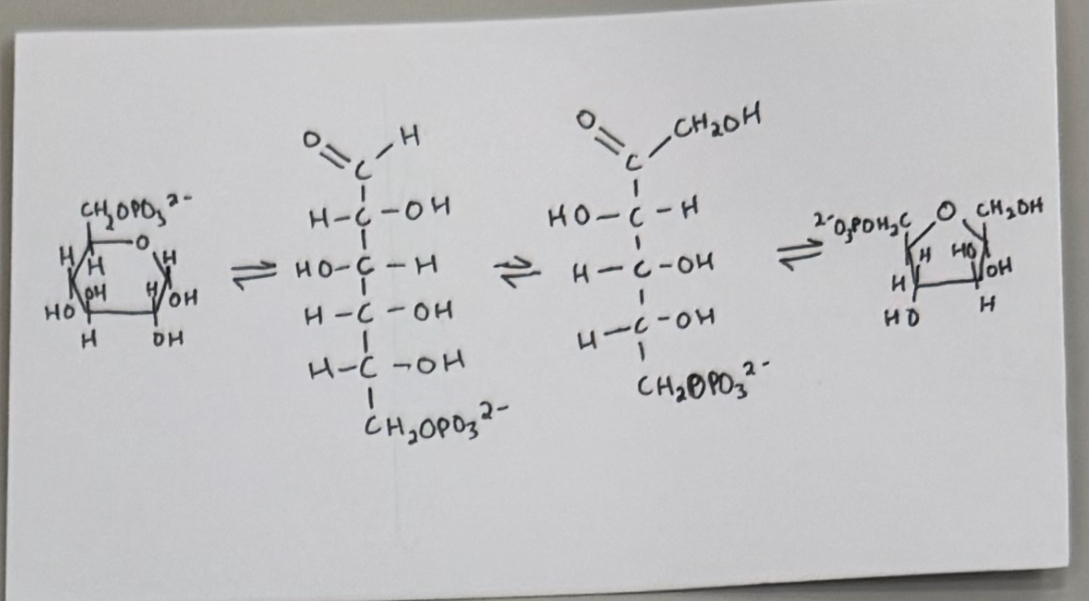 CH₂OPO₃²⁻
H O H
H
OH H OH
HO
H OH
⇌
O H
C
H-C-OH
HO-C-H
H-C-OH
H-C-OH
CH₂OPO₃²⁻
⇌
O CH₂OH
C
HO-C-H
H-C-OH
H-C-OH
CH₂OPO₃²⁻
⇌
²⁻O₃POH₂C O CH₂OH
H HO
H OH
HO H